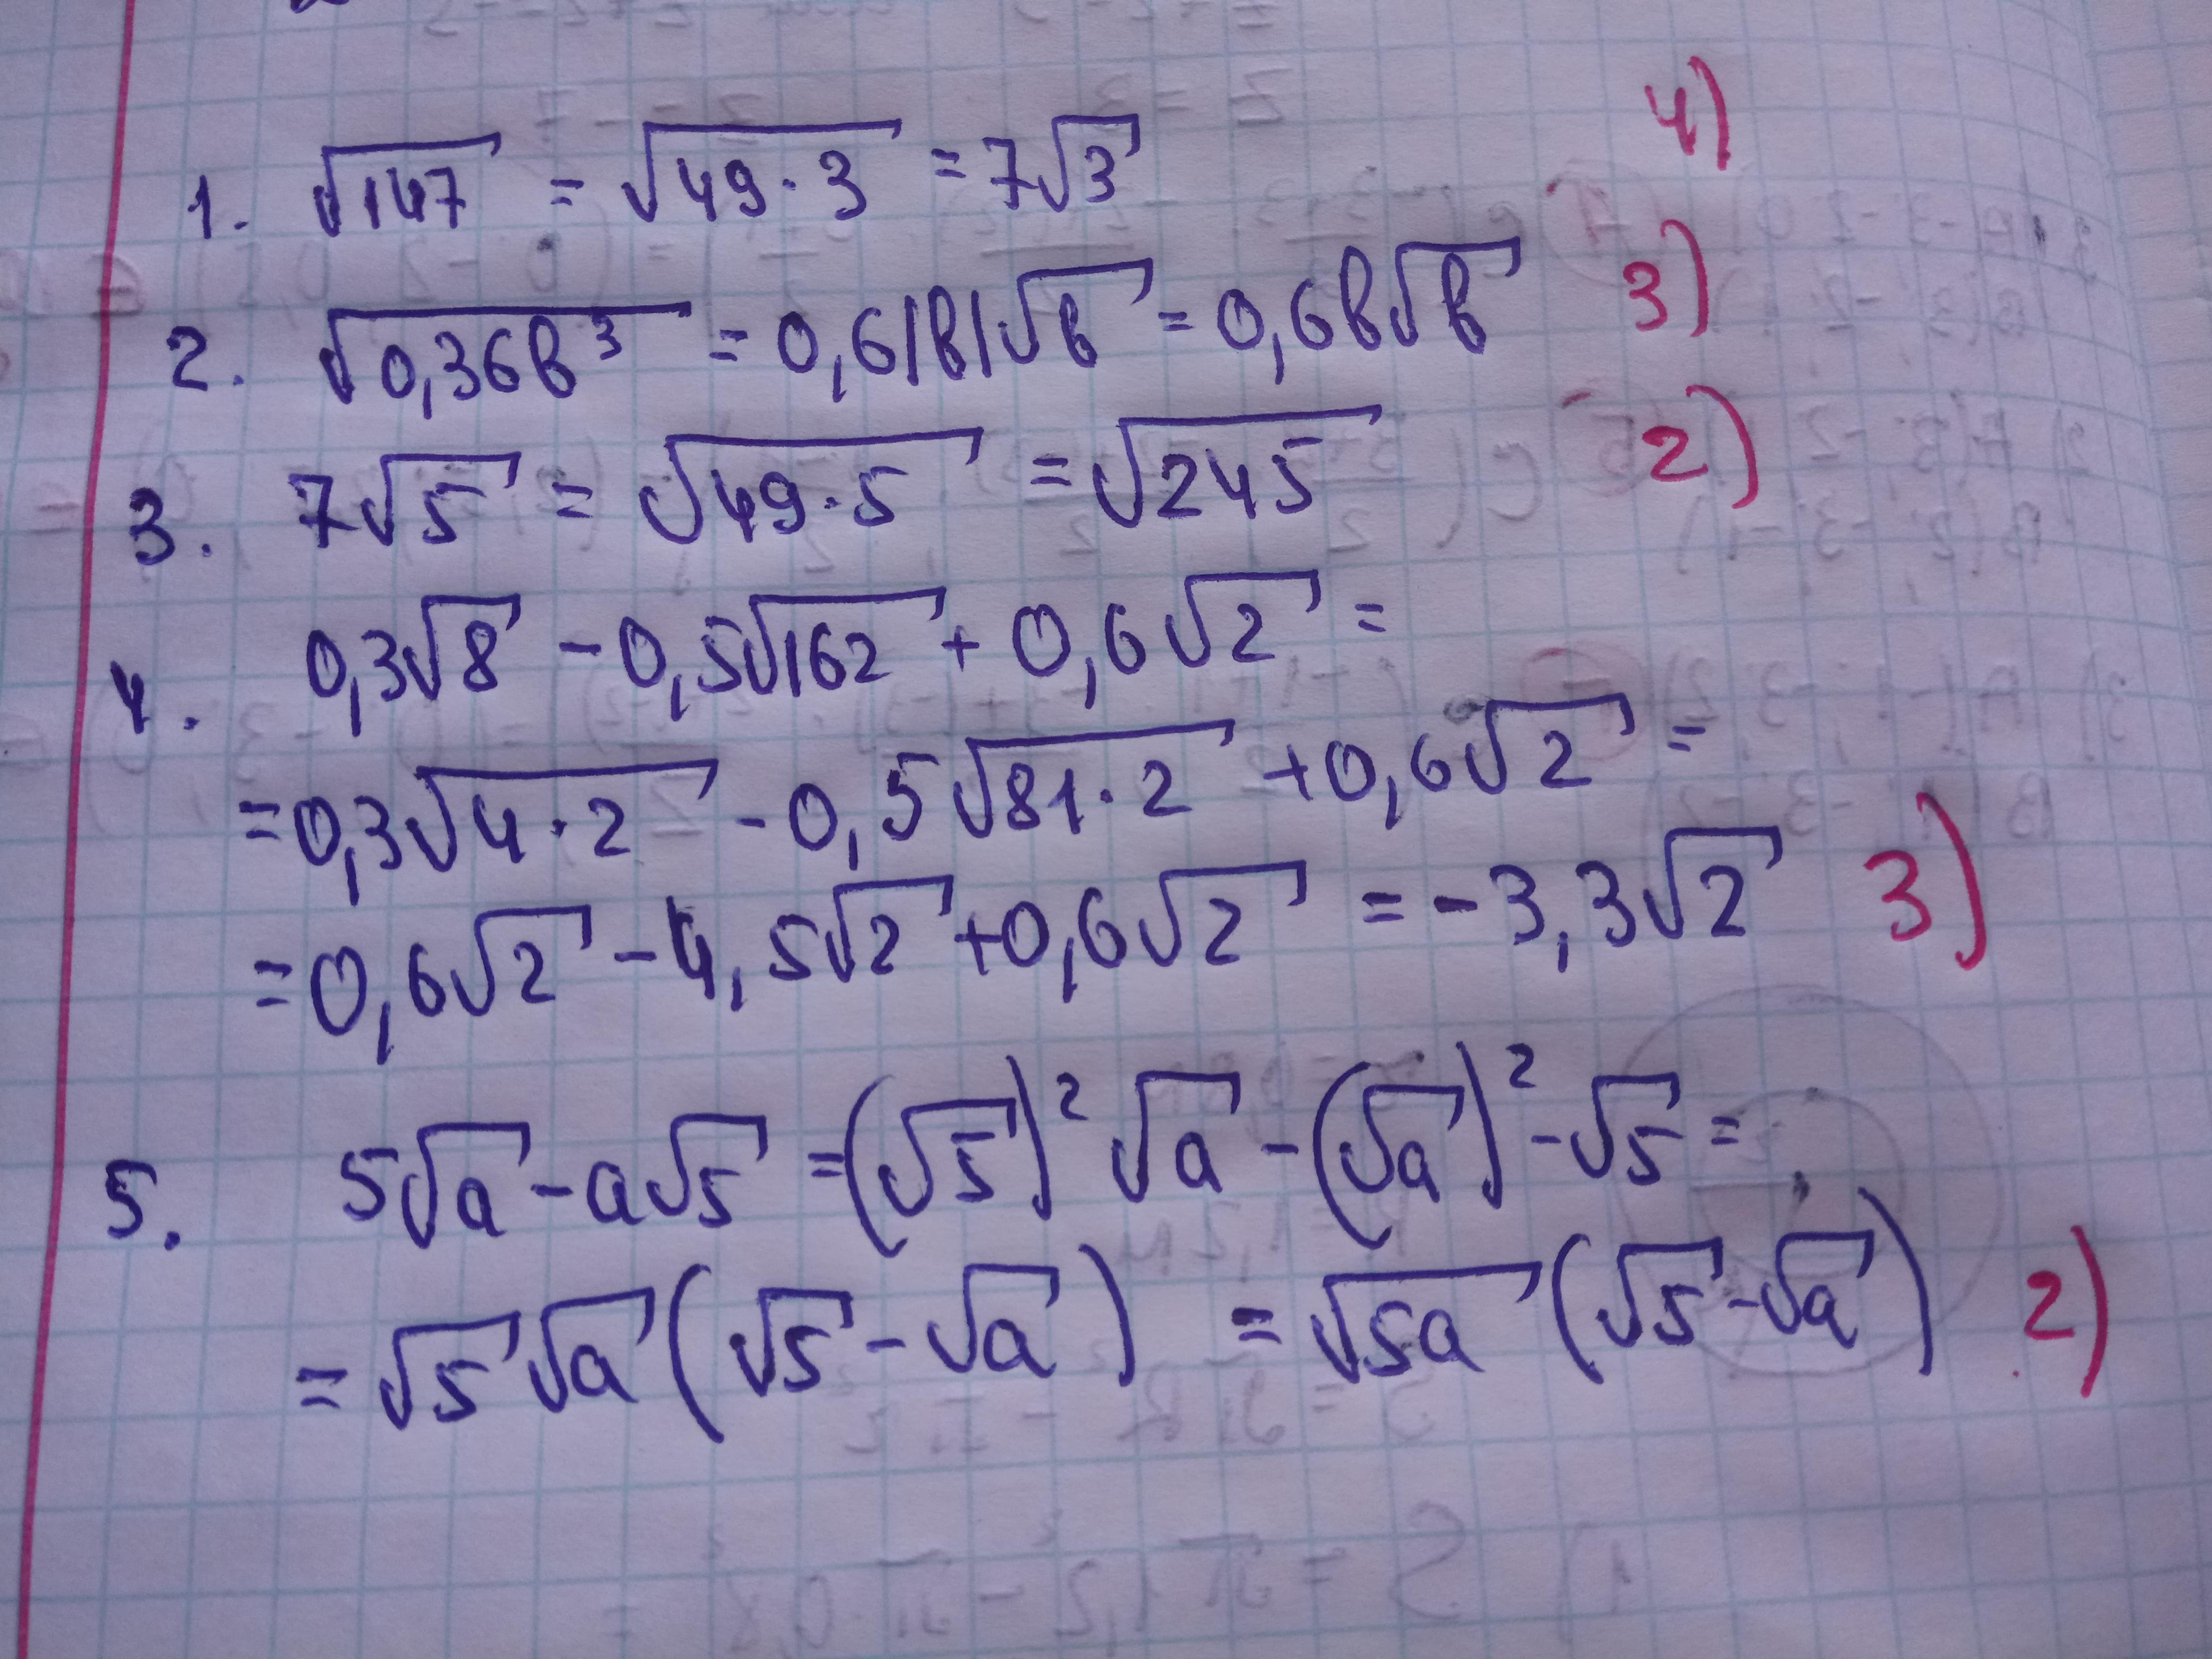 1. √147 = √49·3 = 7√3 4)
2. √0,36b³ = 0,6|b|√b = 0,6b√b 3)
3. 7√5 = √49·5 = √245 2)
4. 0,3√8 - 0,5√162 + 0,6√2 =
= 0,3√4·2 - 0,5√81·2 + 0,6√2 =
= 0,6√2 - 4,5√2 + 0,6√2 = -3,3√2 3)
5. 5√a - a√5 = (√5)²√a - (√a)² - √5 =
= √5√a(√5 - √a) = √5a(√5 - √a) 2)